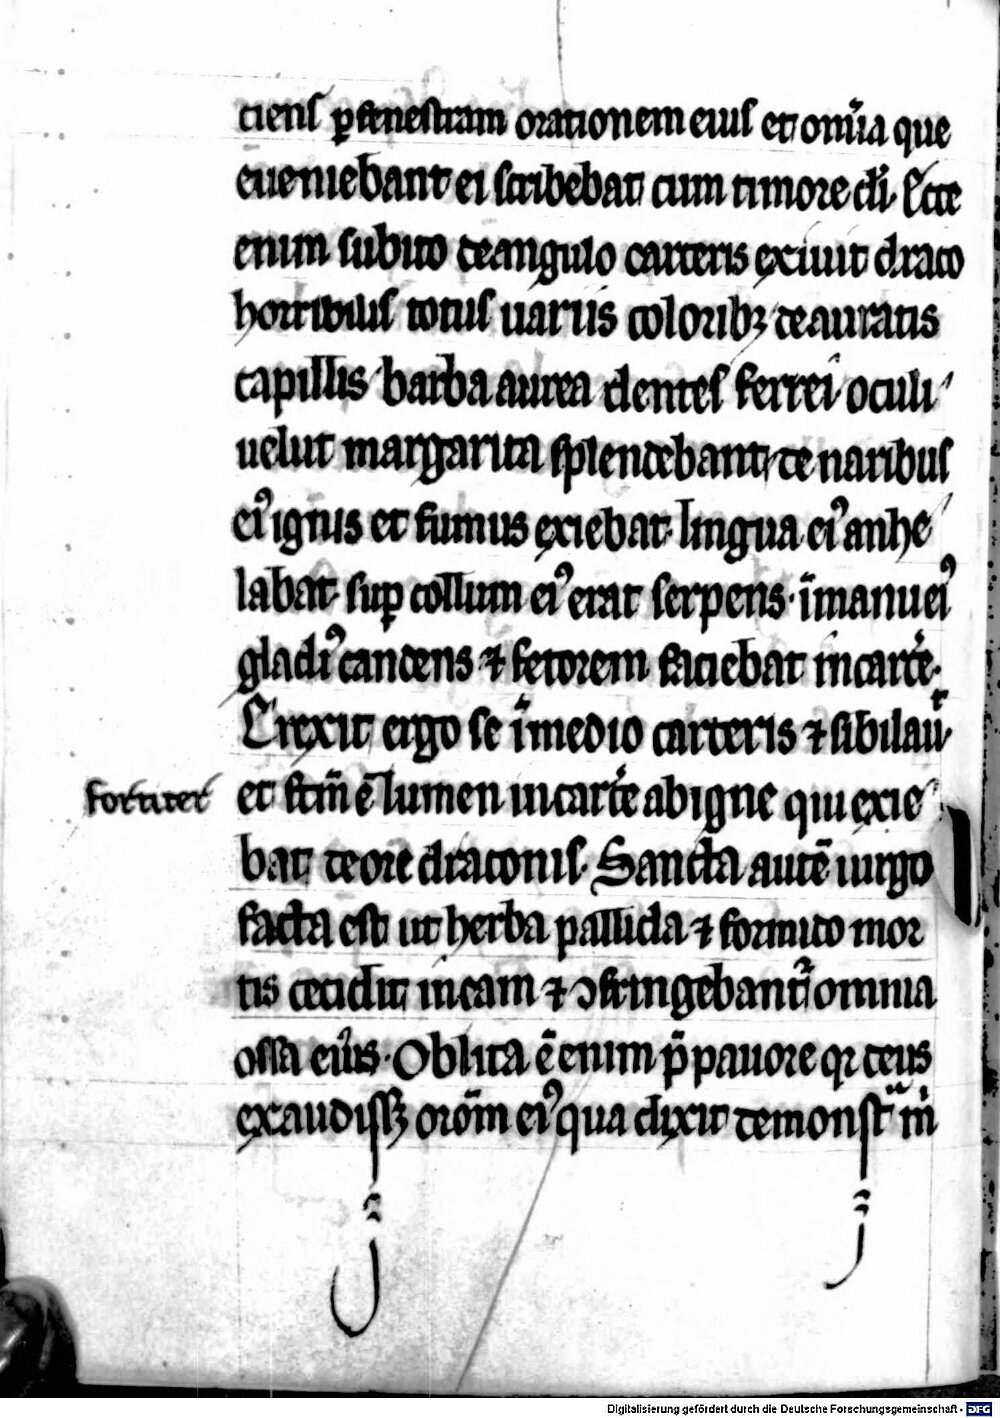 ciens ꝑ fenestram orationem eius et om̅ia que
eueniebant ei scribebat cum timore dī. Ecce
enim subito de angulo carceris exiuit draco
horribilis totus uariis coloribꝫ deauratis
capillis barba aurea dentes ferrei oculi
uelut margarita splendebant, de naribus
eiꝰ ignis et fumus exiebat. lingua eiꝰ anhe
labat. suꝑ collum eiꝰ erat serpens. ī manu eiꝰ
gladiꝰ candens ⁊ fetorem faciebat in carc̅e.
Erexit ergo se ī medio carceris ⁊ sibilau̅.
fortiter et ftm̅ e̅ lumen in carc̅e ab igne qui exie
bat de ore draconis. Sancta aute̅ uirgo
facta est ut herba pallida ⁊ formido mor
tis cecidit in eam ⁊ ↄfringebant᷑ omnia
ossa eius. Oblita e̅ enim p̅ pauore qꝛ deus
exaudissꝫ oro̅m eiꝰ qua dixit demonst̅ m̅
Digitalisierung gefördert durch die Deutsche Forschungsgemeinschaft - DFG